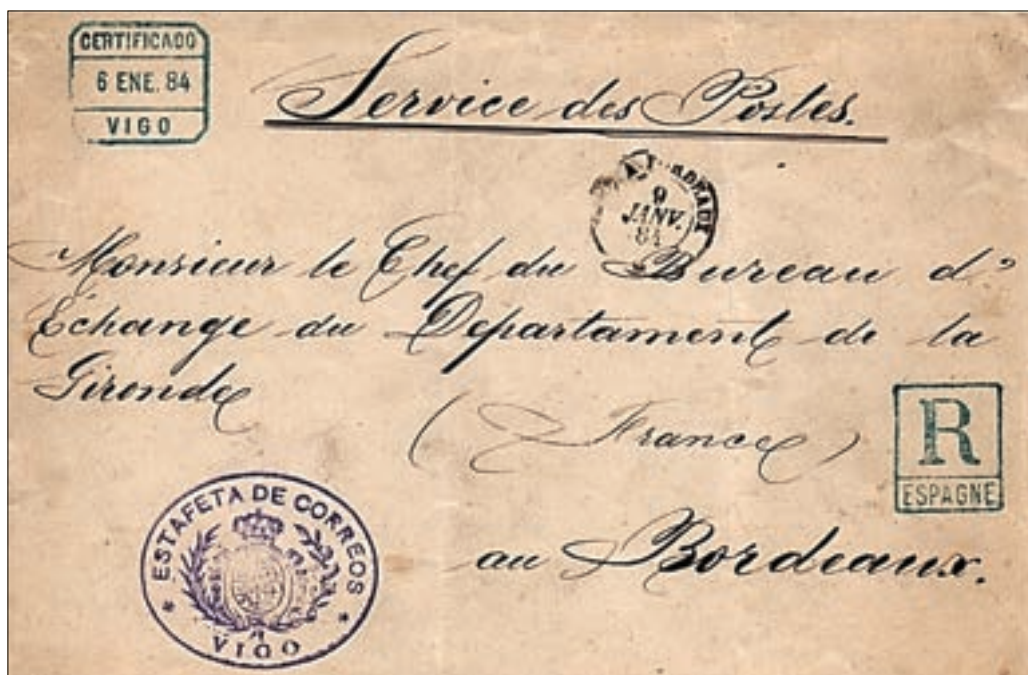 CERTIFICADO
6 ENE. 84
VIGO
Service des Postes.
BORDEAUX
9
JANV.
84
Monsieur le Chef du Bureau d'
Échange du Departament de la
Gironde
(France)
R
ESPAGNE
au Bordeaux.
ESTAFETA DE CORREOS
VIGO